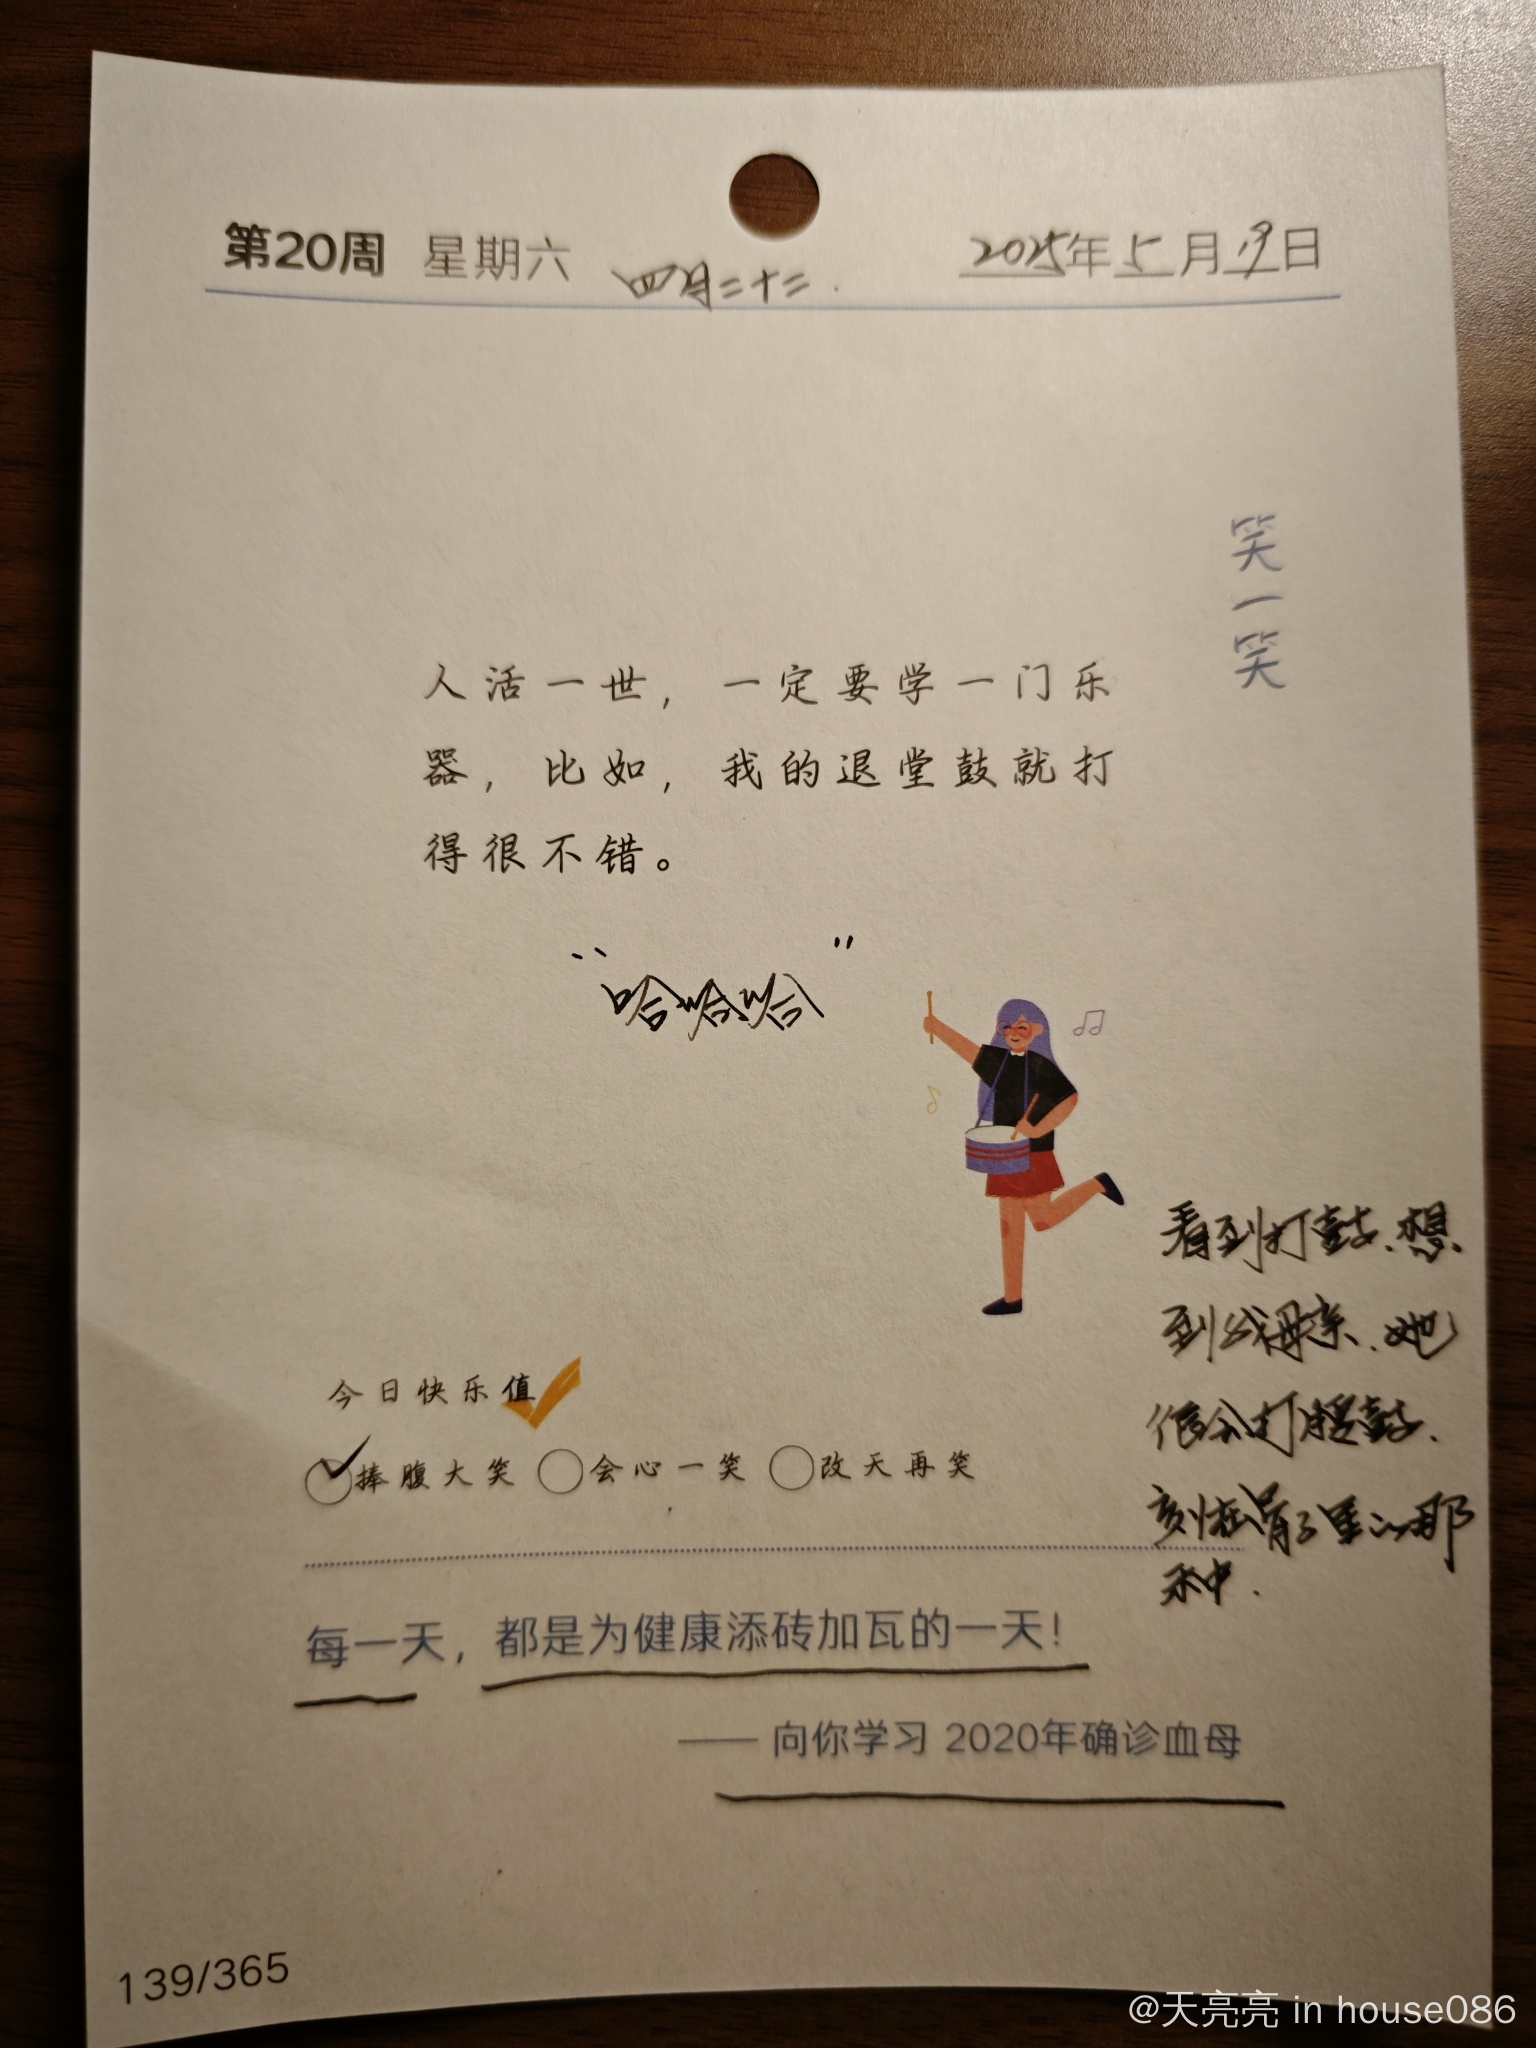 第20周 星期六 四月二十二.
2025年5月19日
笑一笑
人活一世，一定要学一门乐
器，比如，我的退堂鼓就打
得很不错。
“哈哈哈”
看到打鼓.想
到我母亲.她
很会打腰鼓.
刻在骨子里的那
今日快乐值
捧腹大笑 会心一笑 改天再笑
每一天，都是为健康添砖加瓦的一天！
—— 向你学习 2020年确诊血母
139/365
@天亮亮 in house086